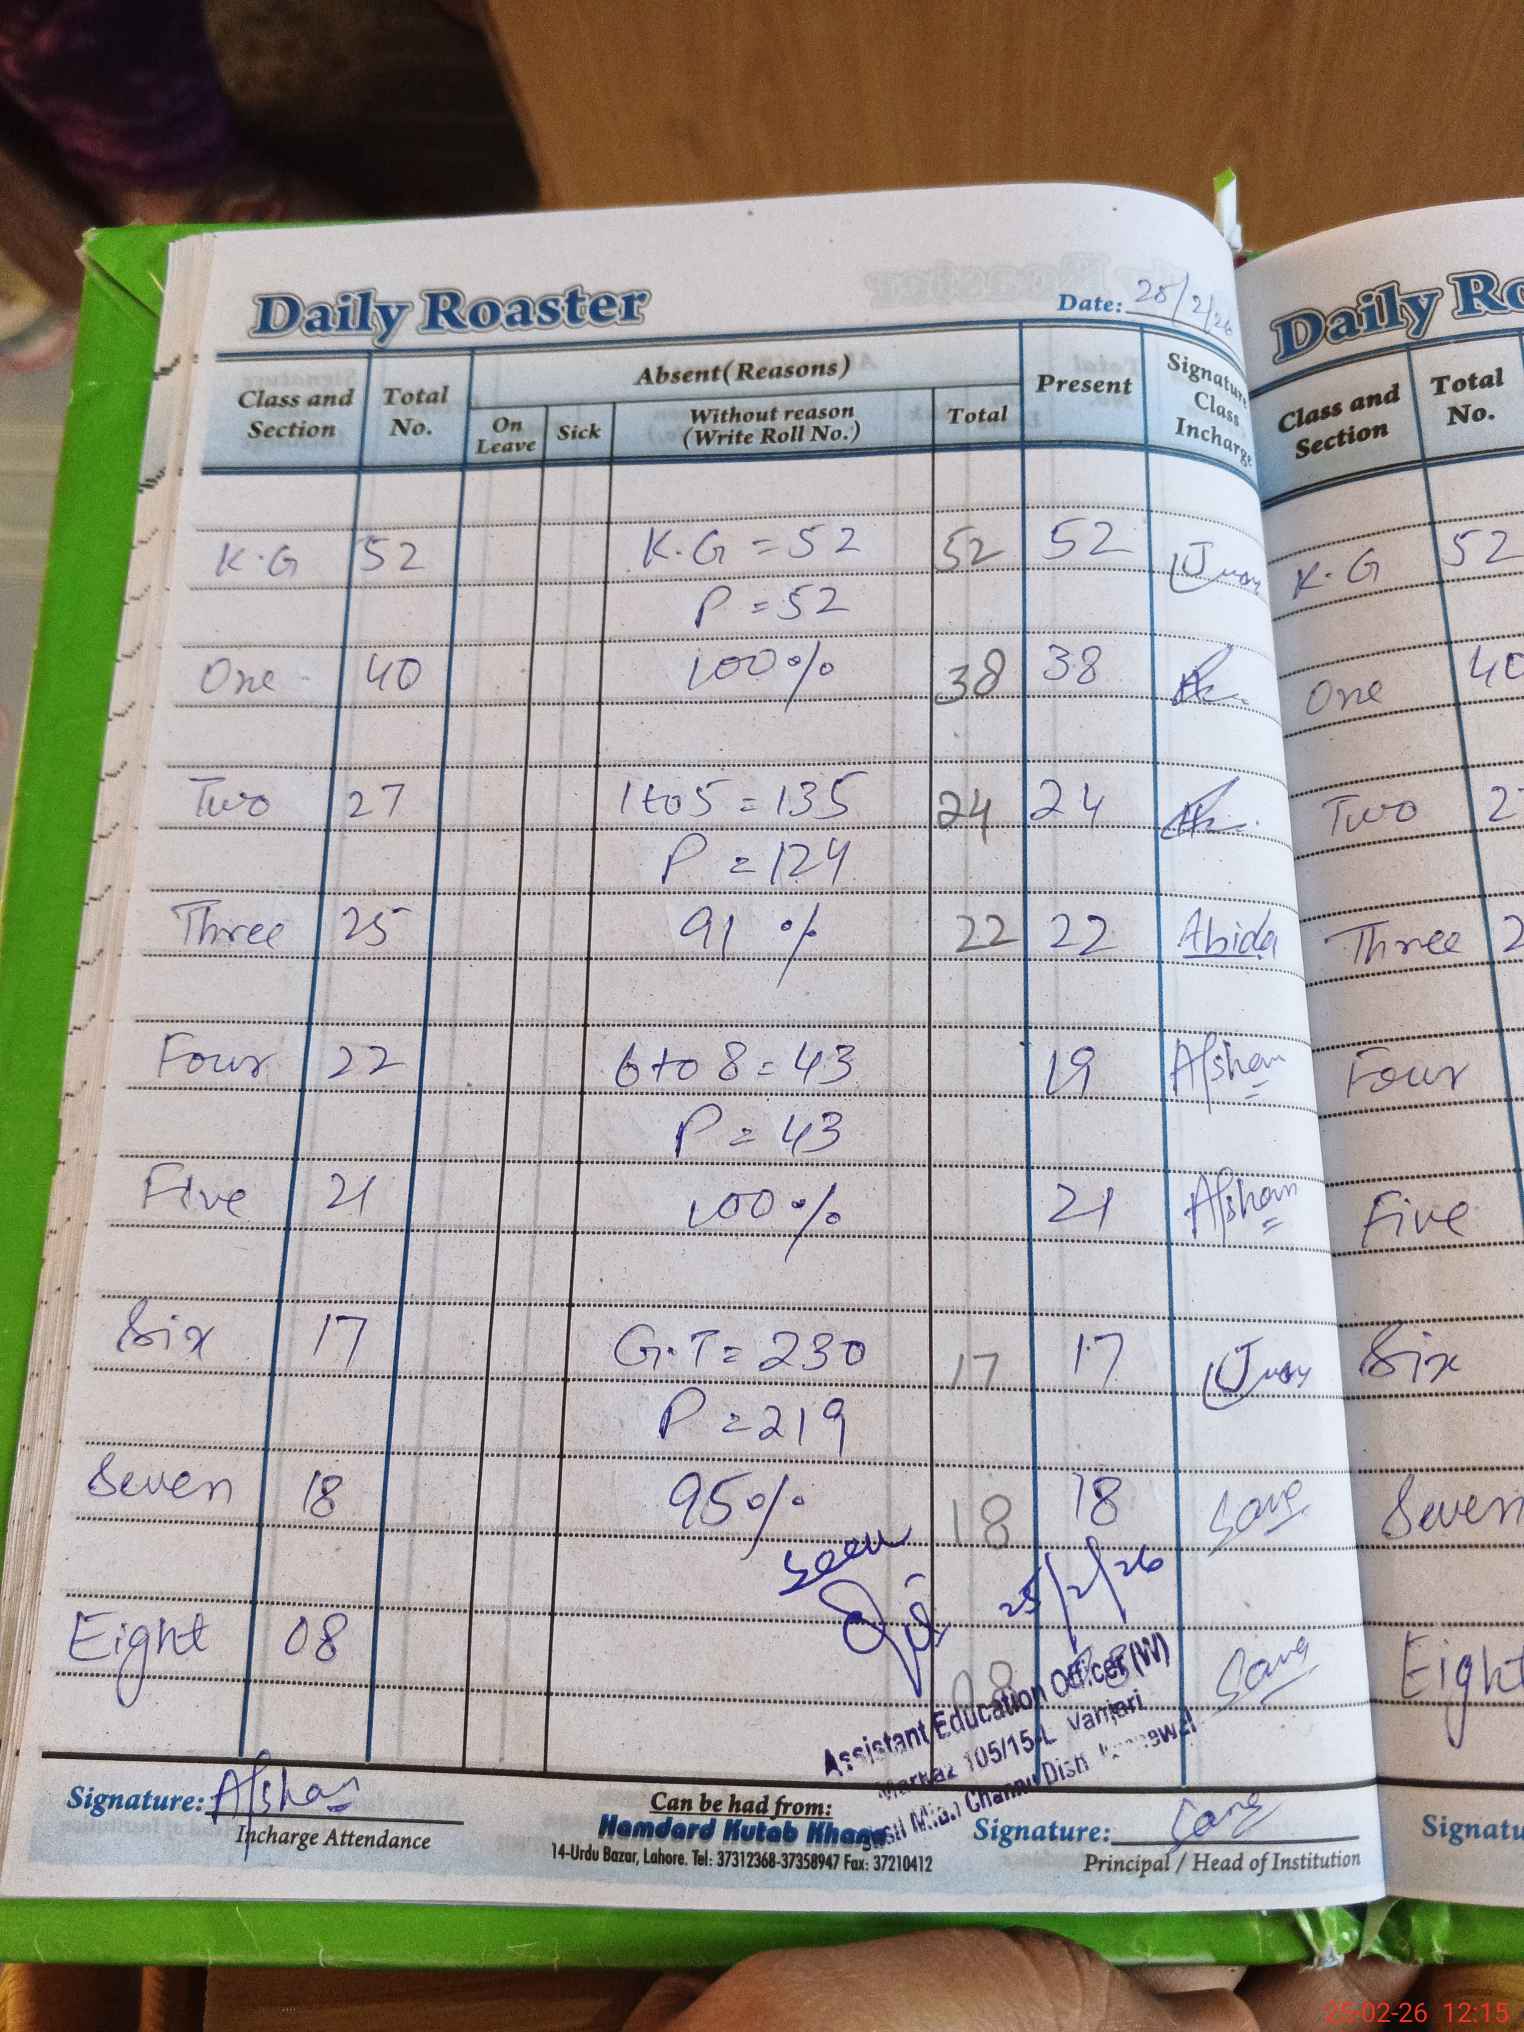 Daily Roaster
Date: 25/2/26
Class and Section
Total No.
Absent(Reasons)
On Leave
Sick
Without reason (Write Roll No.)
Total
Present
Signature Class Incharge
K.G 52 K.G = 52 52 52
P = 52
One 40 100% 38 38
Two 27 1 to 5 = 135 24 24
P = 124
Three 25 91 % 22 22 Abida
Four 22 6 to 8 = 43 19 Afshan
P = 43
Five 21 100% 21 Afshan
Six 17 G.T = 230 17 17
P = 219
Seven 18 95% 18 18
seen
25/2/26
Eight 08 08
Assistant Education Officer (W)
Markaz 105/15-L Vanjari
Mian Channu Distt
Signature: Afshan
Incharge Attendance
Can be had from:
Hamdard Kutab Khana
14-Urdu Bazar, Lahore. Tel: 37312368-37358947 Fax: 37210412
Signature:
Principal / Head of Institution
Daily Ro
Class and Section
Total No.
K.G 52
One 40
Two 2
Three 2
Four
Five
Six
Seven
Eight
Signatu
25-02-26 12:15